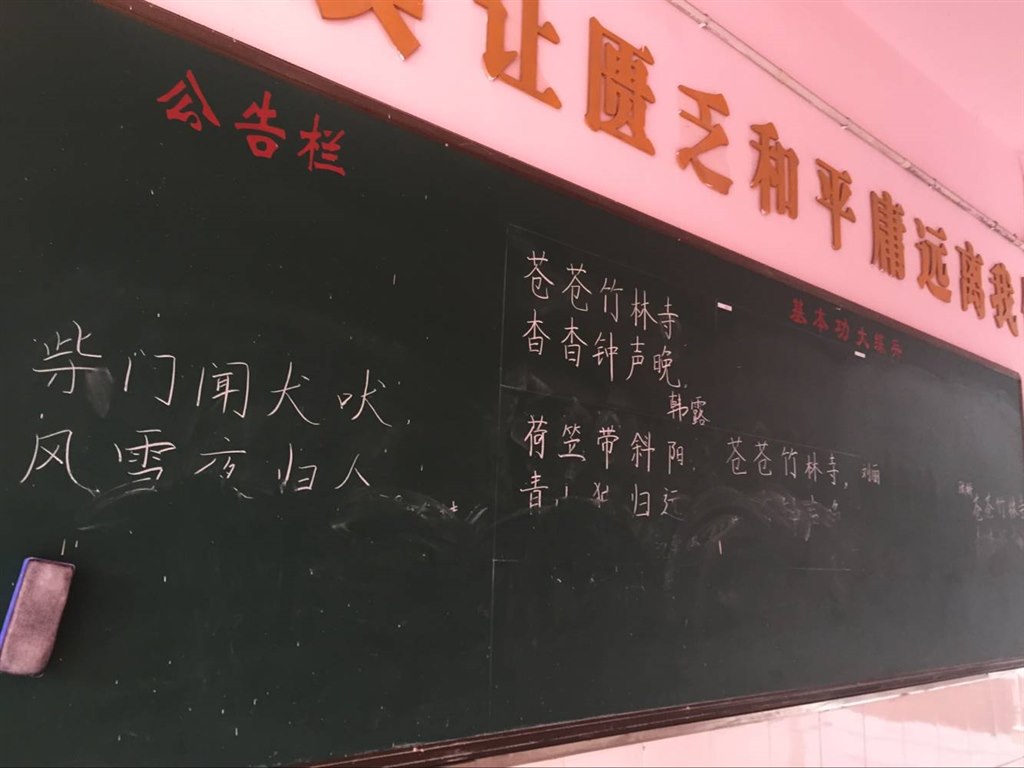 让匮乏和平庸远离我
公告栏
柴门闻犬吠,
风雪夜归人
基本功大练兵
苍苍竹林寺
杳杳钟声晚,
韩露
荷笠带斜阳,
青 归远
苍苍竹林寺,
刘丽
苍苍竹林寺